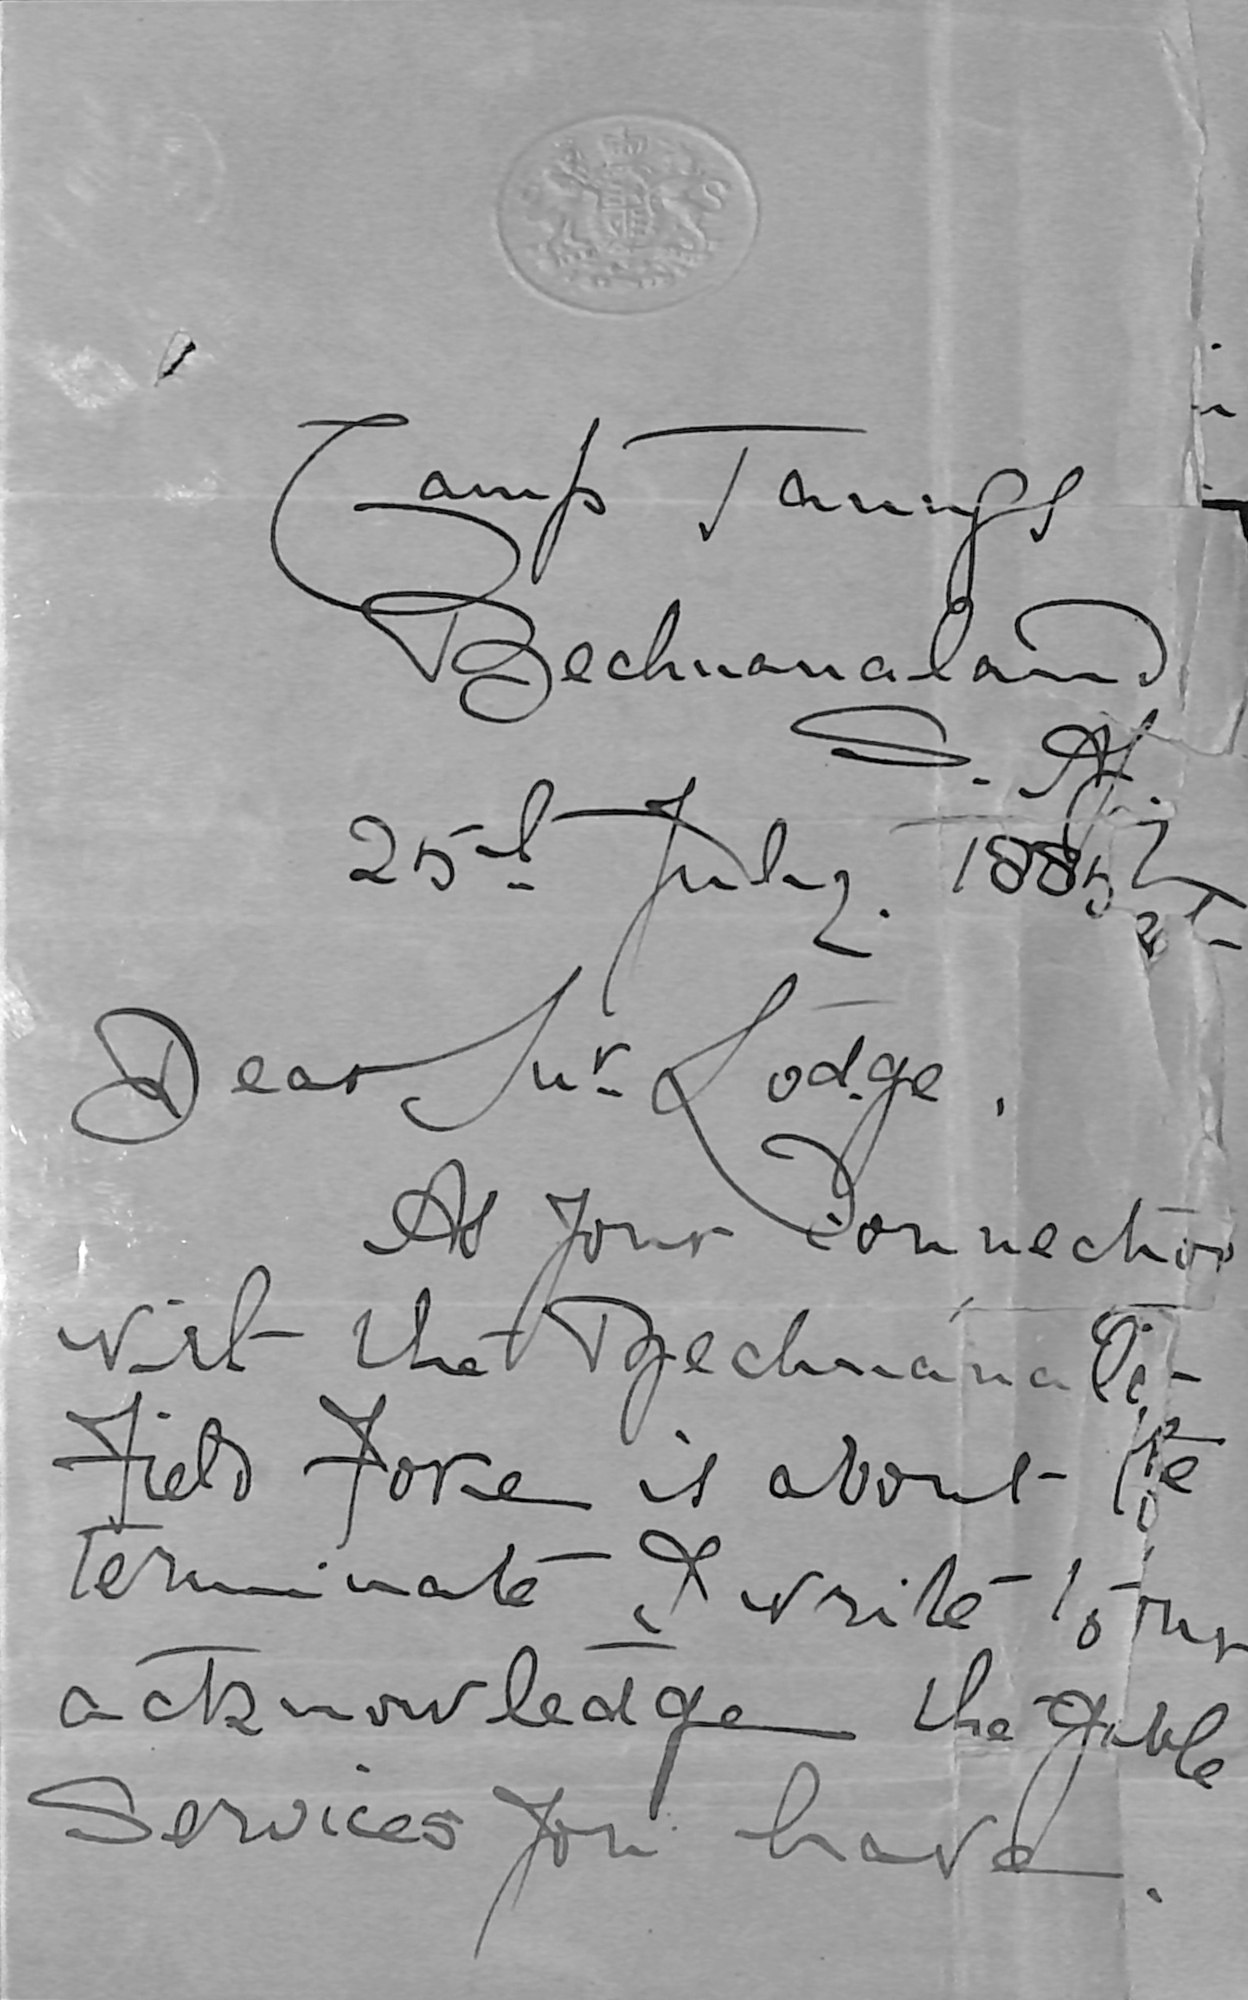 Camp Taungs
Bechuanaland
S. Af.
25th July. 1885
Dear Mr Lodge,
As your connection
with the Bechuana
Field Force is about
terminate I write to
acknowledge the
services you have